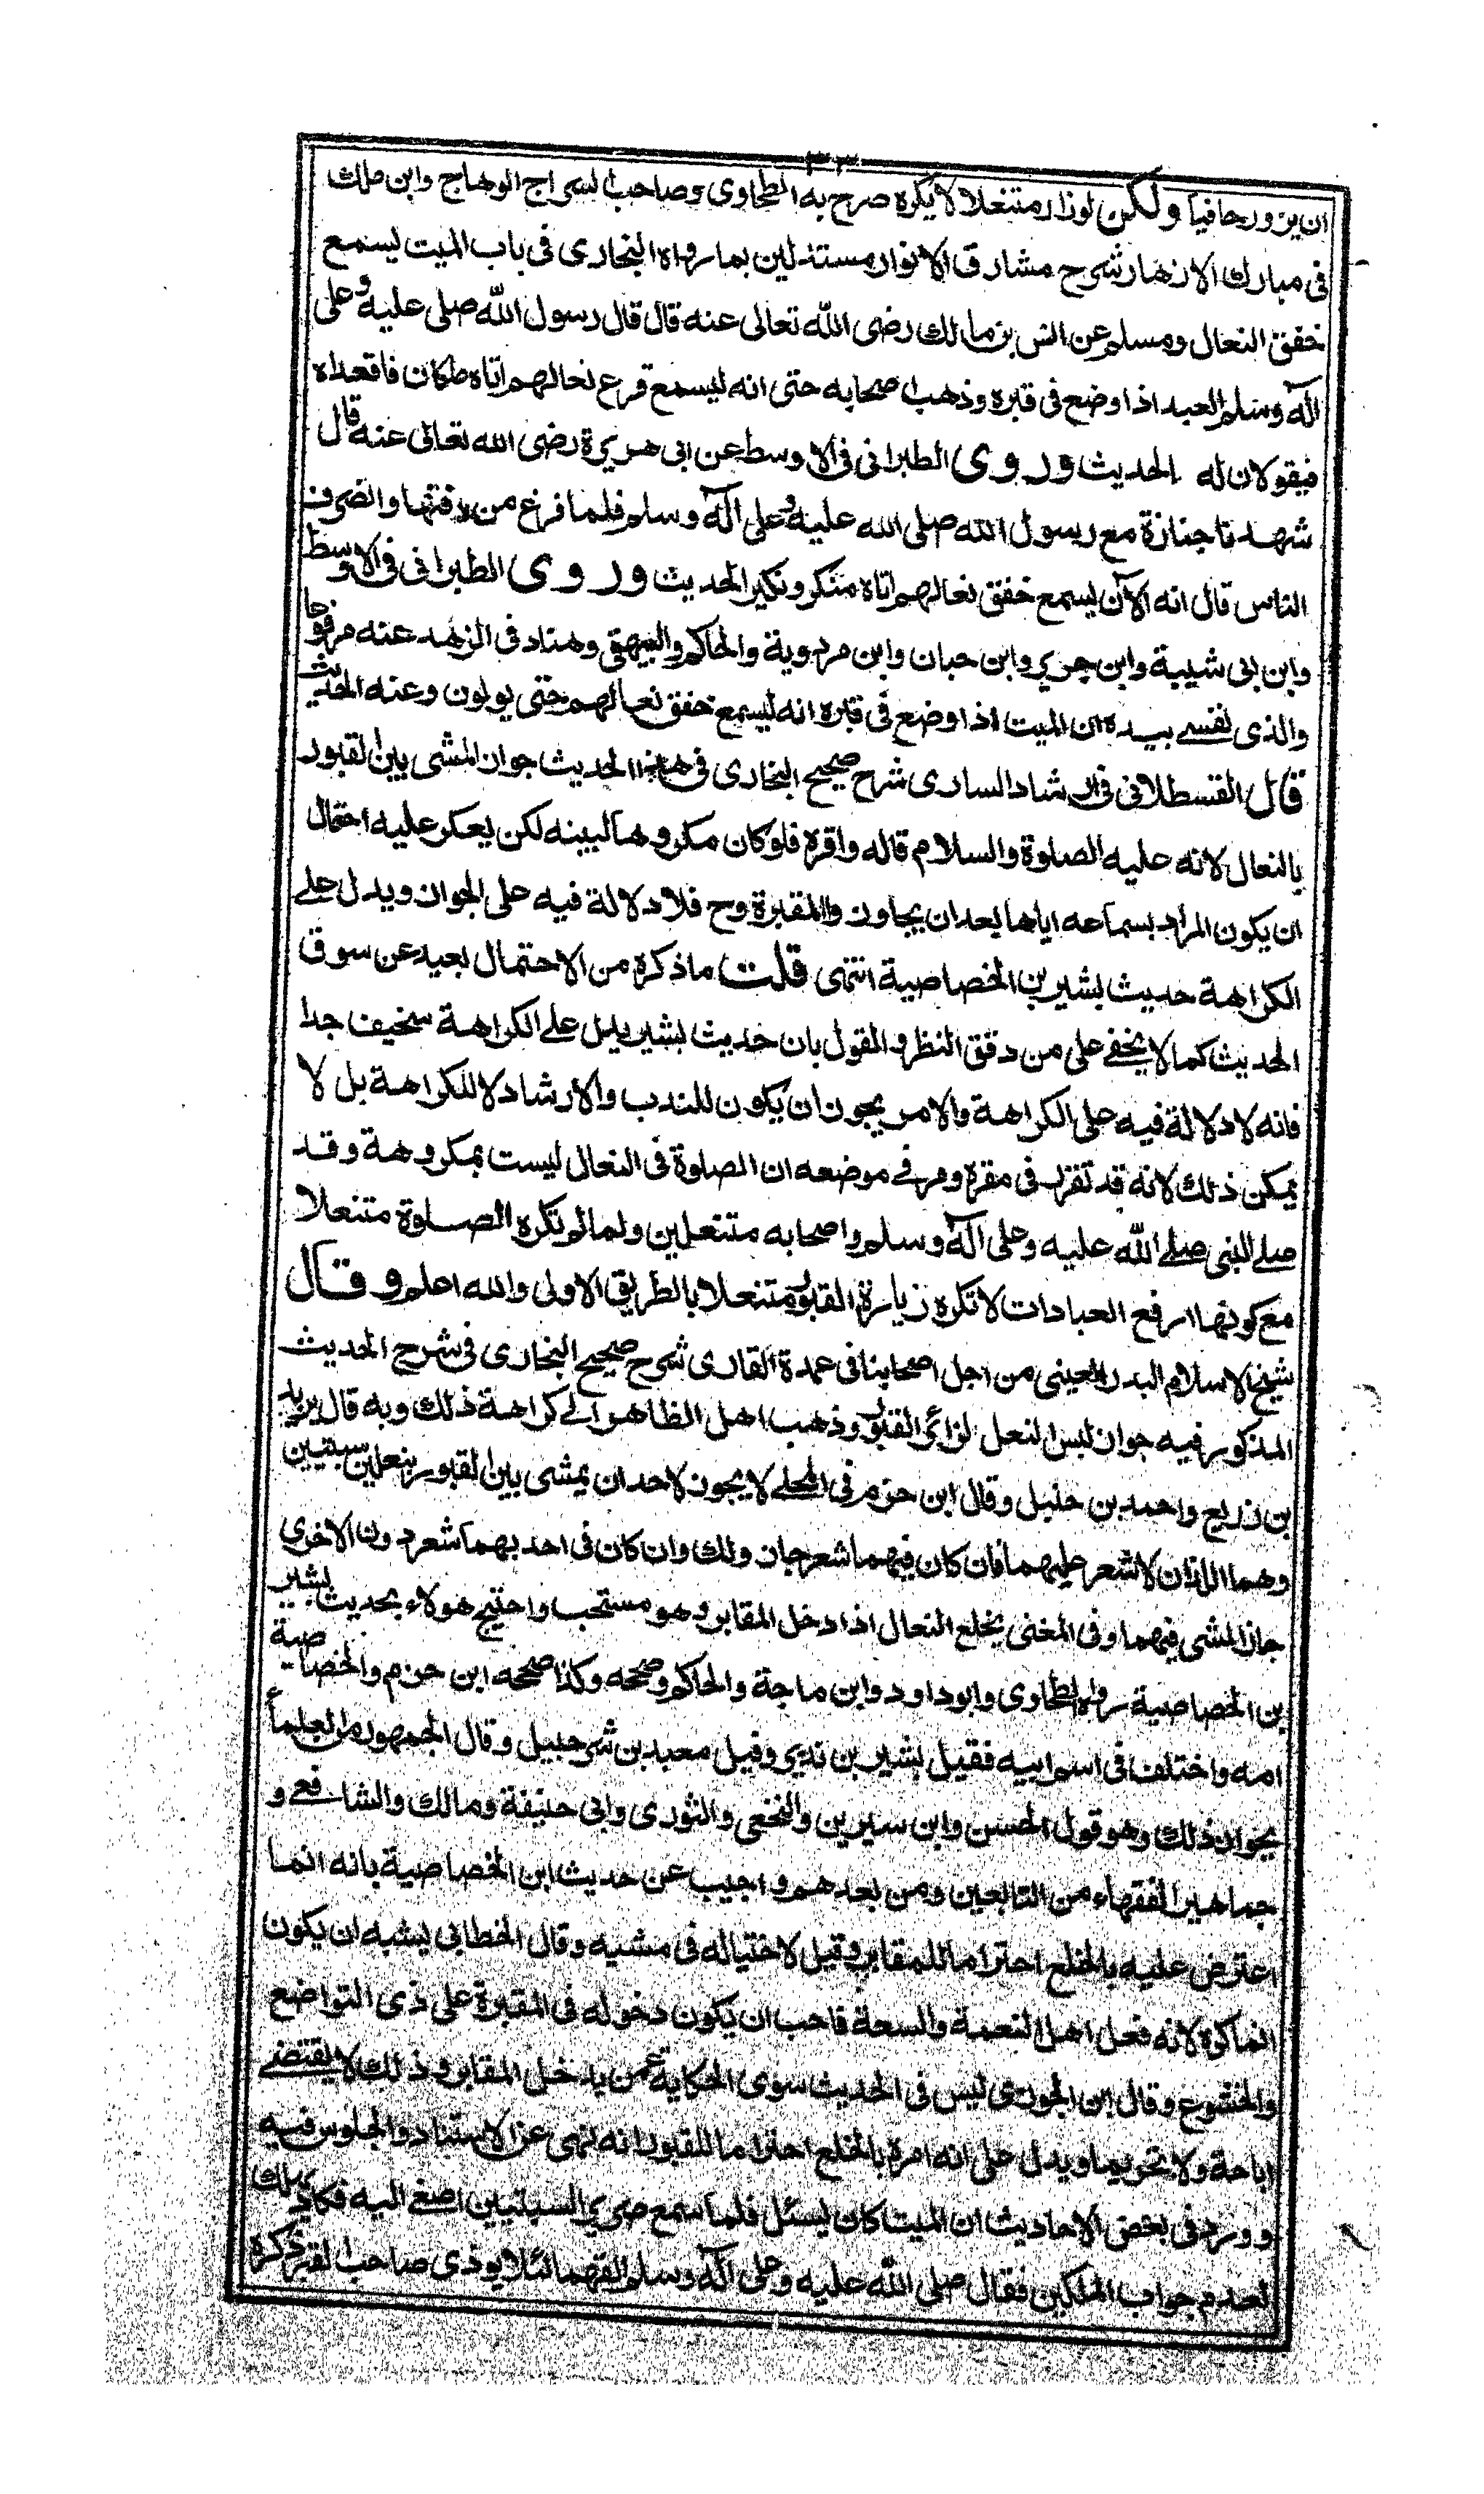 ٣٣
ان يزور حافيا ولكن لوزار متنعلا لا يكره صرح به الطحاوى وصاحب السراج الوهاج وابن ملك
فى مبارك الازهار شرح مشارق الانوار مستدلين بما رواه البخارى فى باب الميت يسمع
خفق النعال ومسلم عن انس بن مالك رضى الله تعالى عنه قال قال رسول الله صلى عليه وعلى
آله وسلم العبد اذا وضع فى قبره وذهب اصحابه حتى انه ليسمع قرع نعالهم اتاه ملكان فاقعداه
فيقولان له الحديث وروى الطبرانى فى الاوسط عن ابى هريرة رضى الله تعالى عنه قال
شهدنا جنازة مع رسول الله صلى الله عليه وعلى آله وسلم فلما فرغ من دفنها وانصرف
الناس قال انه الآن يسمع خفق نعالهم اتاه منكر ونكير الحديث وروى الطبرانى فى الاوسط
وابن ابى شيبة وابن جرير وابن حبان وابن مردوية والحاكم والبيهقى وهناد فى الزهد عنه مرفوعا
والذى نفسے بيده ان الميت اذا وضع فى قبره انه ليسمع خفق نعالهم حتى يولون وعنه الحديث
قال القسطلانى فى ارشاد السارى شرح صحيح البخارى فى هذا الحديث جواز المشى بين القبور
بالنعال لانه عليه الصلوة والسلام قاله واقره فلو كان مكروها لبينه لكن يعكر عليه احتمال
ان يكون المراد بسماعه اياها بعد ان يجاوزوا المقبرة وح فلا دلالة فيه على الجواز ويدل علے
الكراهة حديث بشير بن الخصاصية انتهى قلت ما ذكره من الاحتمال بعيد عن سوق
الحديث كما لا يخفے على من دقق النظر والقول بان حديث بشير يدل علے الكراهة سخيف جدا
فانه لا دلالة فيه على الكراهة والامر يجوز ان يكون للندب والارشاد لا للكراهة بل لا
يمكن ذلك لانه قد تقرر فى مقره ومر فے موضعه ان الصلوة فى النعال ليست بمكروهة وقد
صلے النبى صلے الله عليه وعلى آله وسلم واصحابه متنعلين ولما لم تكره الصلوة متنعلا
مع كونها ارفع العبادات لا تكره زيارة القبور متنعلا بالطريق الاولى والله اعلم وقال
شيخ الاسلام البدر العينى من اجل اصحابنا فى عمدة القارى شرح صحيح البخارى فى شرح الحديث
المذكور فيه جواز لبس النعل لزائر القبور وذهب اهل الظاهر الے كراهة ذلك وبه قال يزيد
بن زريع واحمد بن حنبل وقال ابن حزم فى المحلے لا يجوز لاحد ان يمشى بين القبور بنعلين سبتيين
وهما اللذان لا شعر عليهما فان كان فيهما شعر جاز ذلك وان كان فى احديهما شعر دون الاخرى
جاز المشى فيهما وفى المغنى يخلع النعال اذا دخل المقابر وهو مستحب واحتج هولاء بحديث بشير
بن الخصاصية رواه الطحاوى وابو داود وابن ماجة والحاكم وصححه وكذا صححه ابن حزم والخصاصية
امه واختلف فى اسم ابيه فقيل بشير بن نذير وقيل معبد بن شرحبيل وقال الجمهور من العلماء
بجواز ذلك وهو قول الحسن وابن سيرين والنخعى والثورى وابى حنيفة ومالك والشافعے و
جماهير الفقهاء من التابعين ومن بعدهم واجيب عن حديث ابن الخصاصية بانه انما
اعترض عليه بالخلع احتراما للمقابر وقيل لاختياله فى مشيه وقال الخطابى يشبه ان يكون
انما كره لانه فعل اهل النعمة والسعة فاحب ان يكون دخوله فى المقبرة على ذى التواضع
والخشوع وقال ابن الجوزى ليس فى الحديث سوى الحكاية عمن يدخل المقابر وذلك لا يقتضے
اباحة ولا تحريما ويدل على انه امره بالخلع احتراما للقبور انه نهى عن الاستناد والجلوس فيه
وورد فى بعض الاحاديث ان الميت كان يسئل فلما سمع صرير السبتيين اصغے اليه فكاد يهلك
لعدم جواب الملكين فقال صلى الله عليه وعلى آله وسلم القهما لئلا يوذى صاحب القبر ذكره